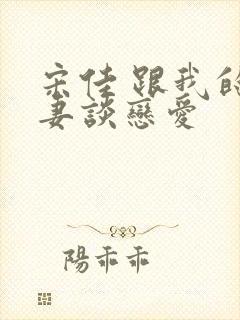 宋佳跟我的
妻談戀愛
陽乖乖